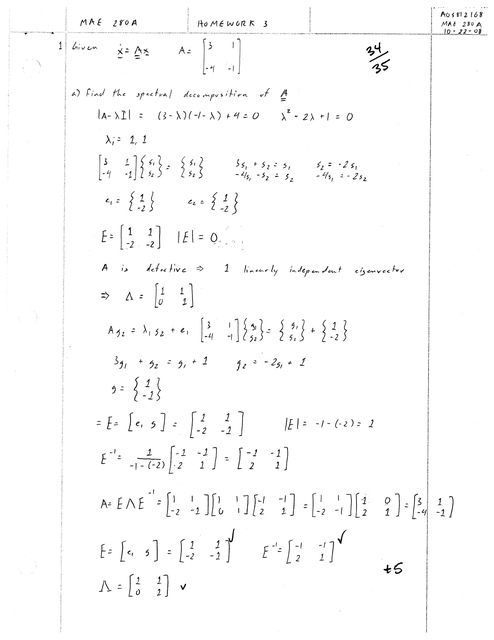 MAE 280A
HOMEWORK 3
A05812168
MAE 280A
10-22-08
1 Given ẋ = Ax A = [3 1; -4 -1]
34/35
a) Find the spectral decomposition of A
|A-λI| = (3-λ)(-1-λ) + 4 = 0 λ² - 2λ + 1 = 0
λi = 1, 1
[3 1; -4 -1]{s1; s2} = {s1; s2} 3s1 + s2 = s1 s2 = -2s1
-4s1 - s2 = s2 -4s1 = -2s2
e1 = {1; -2} e2 = {1; -2}
E = [1 1; -2 -2] |E| = 0
A is defective ⇒ 1 linearly independent eigenvector
⇒ Λ = [1 1; 0 1]
Ag2 = λ1 g2 + e1 [3 1; -4 -1]{g1; g2} = {g1; g2} + {1; -2}
3g1 + g2 = g1 + 1 g2 = -2g1 + 1
g = {1; -1}
= E = [e1 g] = [1 1; -2 -1] |E| = -1 - (-2) = 1
E⁻¹ = 1/(-1-(-2)) [-1 -1; 2 1] = [-1 -1; 2 1]
A = EΛE⁻¹ = [1 1; -2 -1][1 1; 0 1][-1 -1; 2 1] = [1 1; -2 -1][1 0; 2 1] = [3 1; -4 -1]
E = [e1 g] = [1 1; -2 -1] ✓ E⁻¹ = [-1 -1; 2 1] ✓
+5
Λ = [1 1; 0 1] ✓